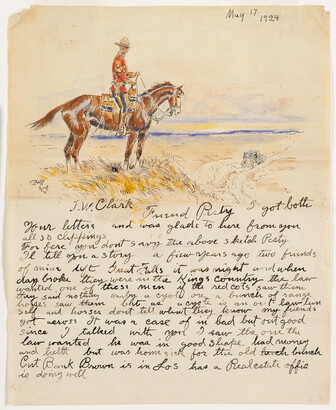 May 17 1924
T.W. Clark
Friend Pesty I got both
Your letters and was glade to here from you
all so clippings
For here you dont savvy the above sketch Pesty
Il till you a story a few years ago two friends
of mine left Great Falls it was night and when
day broke they were in the Kings Country the law
wanted one of these men if the red cots saw them
they said nothing only a cyote or a bunch of range
horses saw them but a cayote is an out law him
self and horses dont tell what they know my friends
got across It was a case of in bad but out good
since I talked with you I saw the one the
law wanted he was in good shape had money
and helth but was home sick for the old bunch
Cut Bank Brown is in Los has a Real estate offic
is doing well